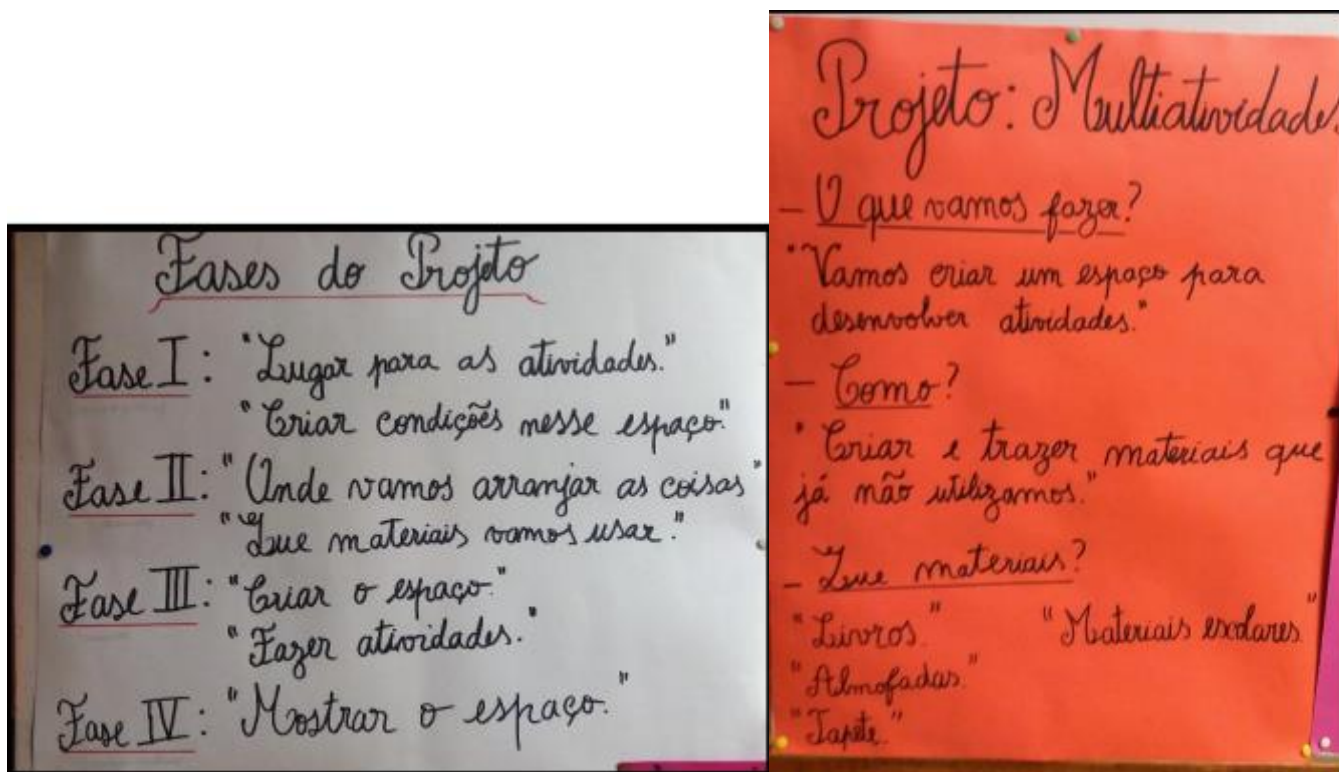 Fases do Projeto
Fase I: "Lugar para as atividades."
"Criar condições nesse espaço."
Fase II: "Onde vamos arranjar as coisas"
"Que materiais vamos usar."
Fase III: "Criar o espaço."
"Fazer atividades."
Fase IV: "Mostrar o espaço."
Projeto: Multiatividades
- O que vamos fazer?
"Vamos criar um espaço para
desenvolver atividades."
- Como?
"Criar e trazer materiais que
já não utilizamos."
- Que materiais?
"Livros." "Materiais escolares"
"Almofadas."
"Tapete."